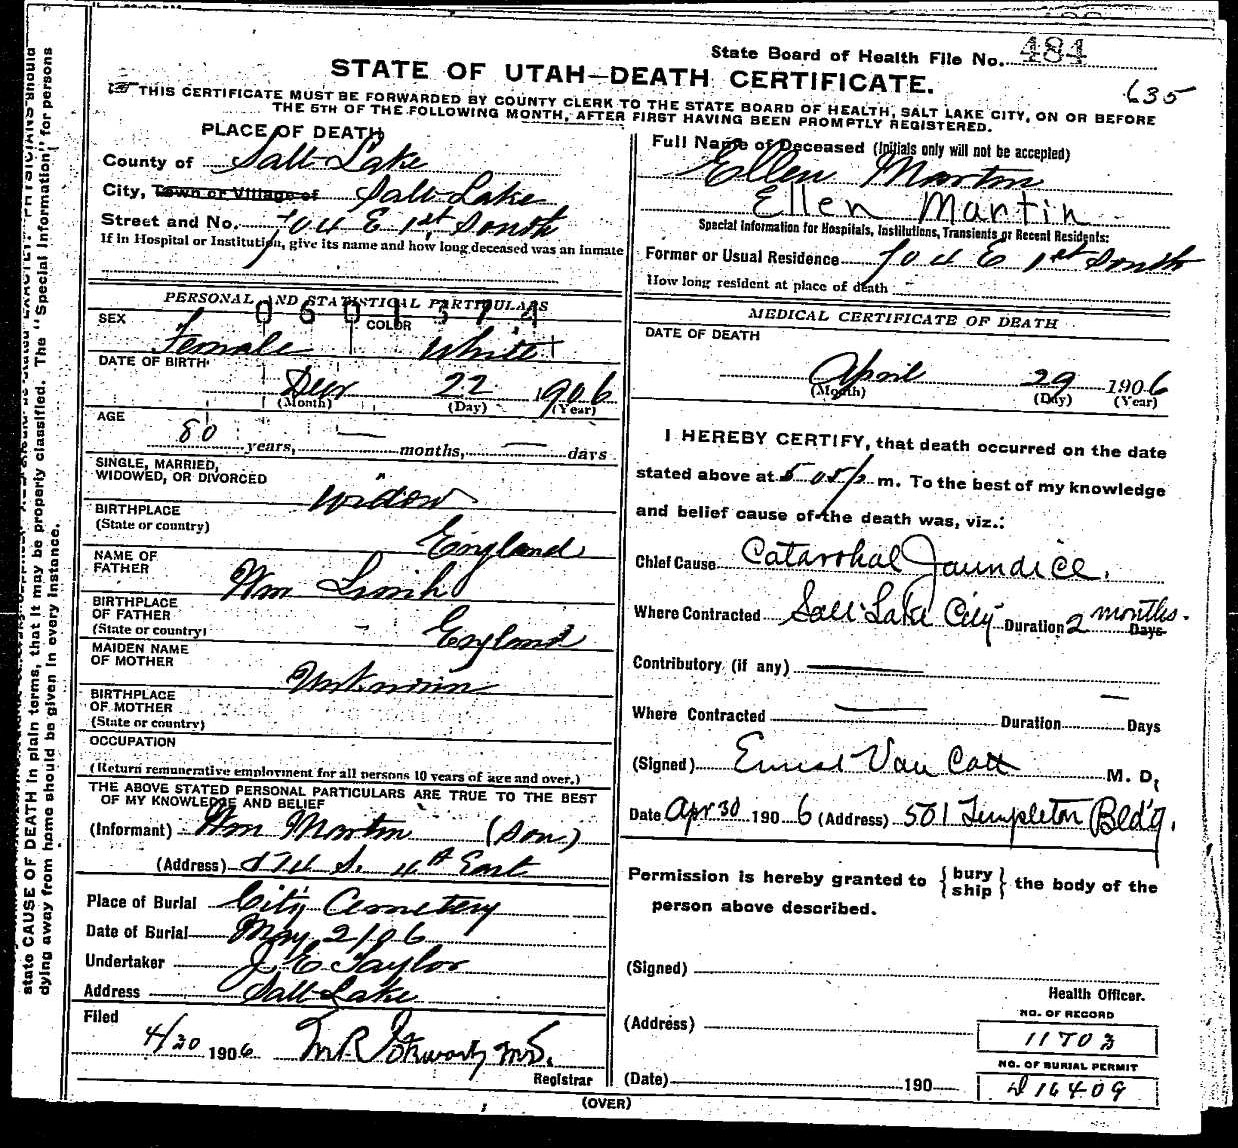 State Board of Health File No. 484
STATE OF UTAH—DEATH CERTIFICATE.
635
THIS CERTIFICATE MUST BE FORWARDED BY COUNTY CLERK TO THE STATE BOARD OF HEALTH, SALT LAKE CITY, ON OR BEFORE
THE 5TH OF THE FOLLOWING MONTH, AFTER FIRST HAVING BEEN PROMPTLY REGISTERED.
PLACE OF DEATH
County of Salt Lake
City, Town or Village of Salt Lake
Street and No. 704 E 1st South
If in Hospital or Institution, give its name and how long deceased was an inmate
PERSONAL AND STATISTICAL PARTICULARS
0601374
SEX Female
COLOR White
DATE OF BIRTH
22 1906
(Month) (Day) (Year)
AGE
80 years, — months, — days
SINGLE, MARRIED,
WIDOWED, OR DIVORCED
widow
BIRTHPLACE
(State or country)
England
NAME OF
FATHER
Wm
BIRTHPLACE
OF FATHER
(State or country)
England
MAIDEN NAME
OF MOTHER
Unknown
BIRTHPLACE
OF MOTHER
(State or country)
OCCUPATION
(Return remunerative employment for all persons 10 years of age and over.)
THE ABOVE STATED PERSONAL PARTICULARS ARE TRUE TO THE BEST
OF MY KNOWLEDGE AND BELIEF
(Informant) Wm Martin (Son)
(Address) 174 S. 4th East
Place of Burial City Cemetery
Date of Burial May 2/06
Undertaker J E Taylor
Address Salt Lake
Filed
4/30 1906 M.D.
Registrar
(OVER)
Full Name of Deceased (Initials only will not be accepted)
Ellen Martin
Ellen Martin
Special Information for Hospitals, Institutions, Transients or Recent Residents:
Former or Usual Residence 704 E 1st South
How long resident at place of death —
MEDICAL CERTIFICATE OF DEATH
DATE OF DEATH
April 29 1906
(Month) (Day) (Year)
I HEREBY CERTIFY, that death occurred on the date
stated above at 5 05 p m. To the best of my knowledge
and belief cause of the death was, viz.:
Chief Cause Catarrhal Jaundice.
Where Contracted Salt Lake City Duration 2 months. Days
Contributory (if any) —
Where Contracted — Duration — Days
(Signed) Ernest Van Cott M. D.
Date Apr 30 1906 (Address) 501 Templeton Bld'g.
Permission is hereby granted to { bury
ship } the body of the
person above described.
(Signed)
Health Officer.
(Address)
NO. OF RECORD
11703
NO. OF BURIAL PERMIT
16409
(Date) 190
state CAUSE OF DEATH in plain terms, that it may be properly classified. The "Special Information" for persons
dying away from home should be given in every instance.